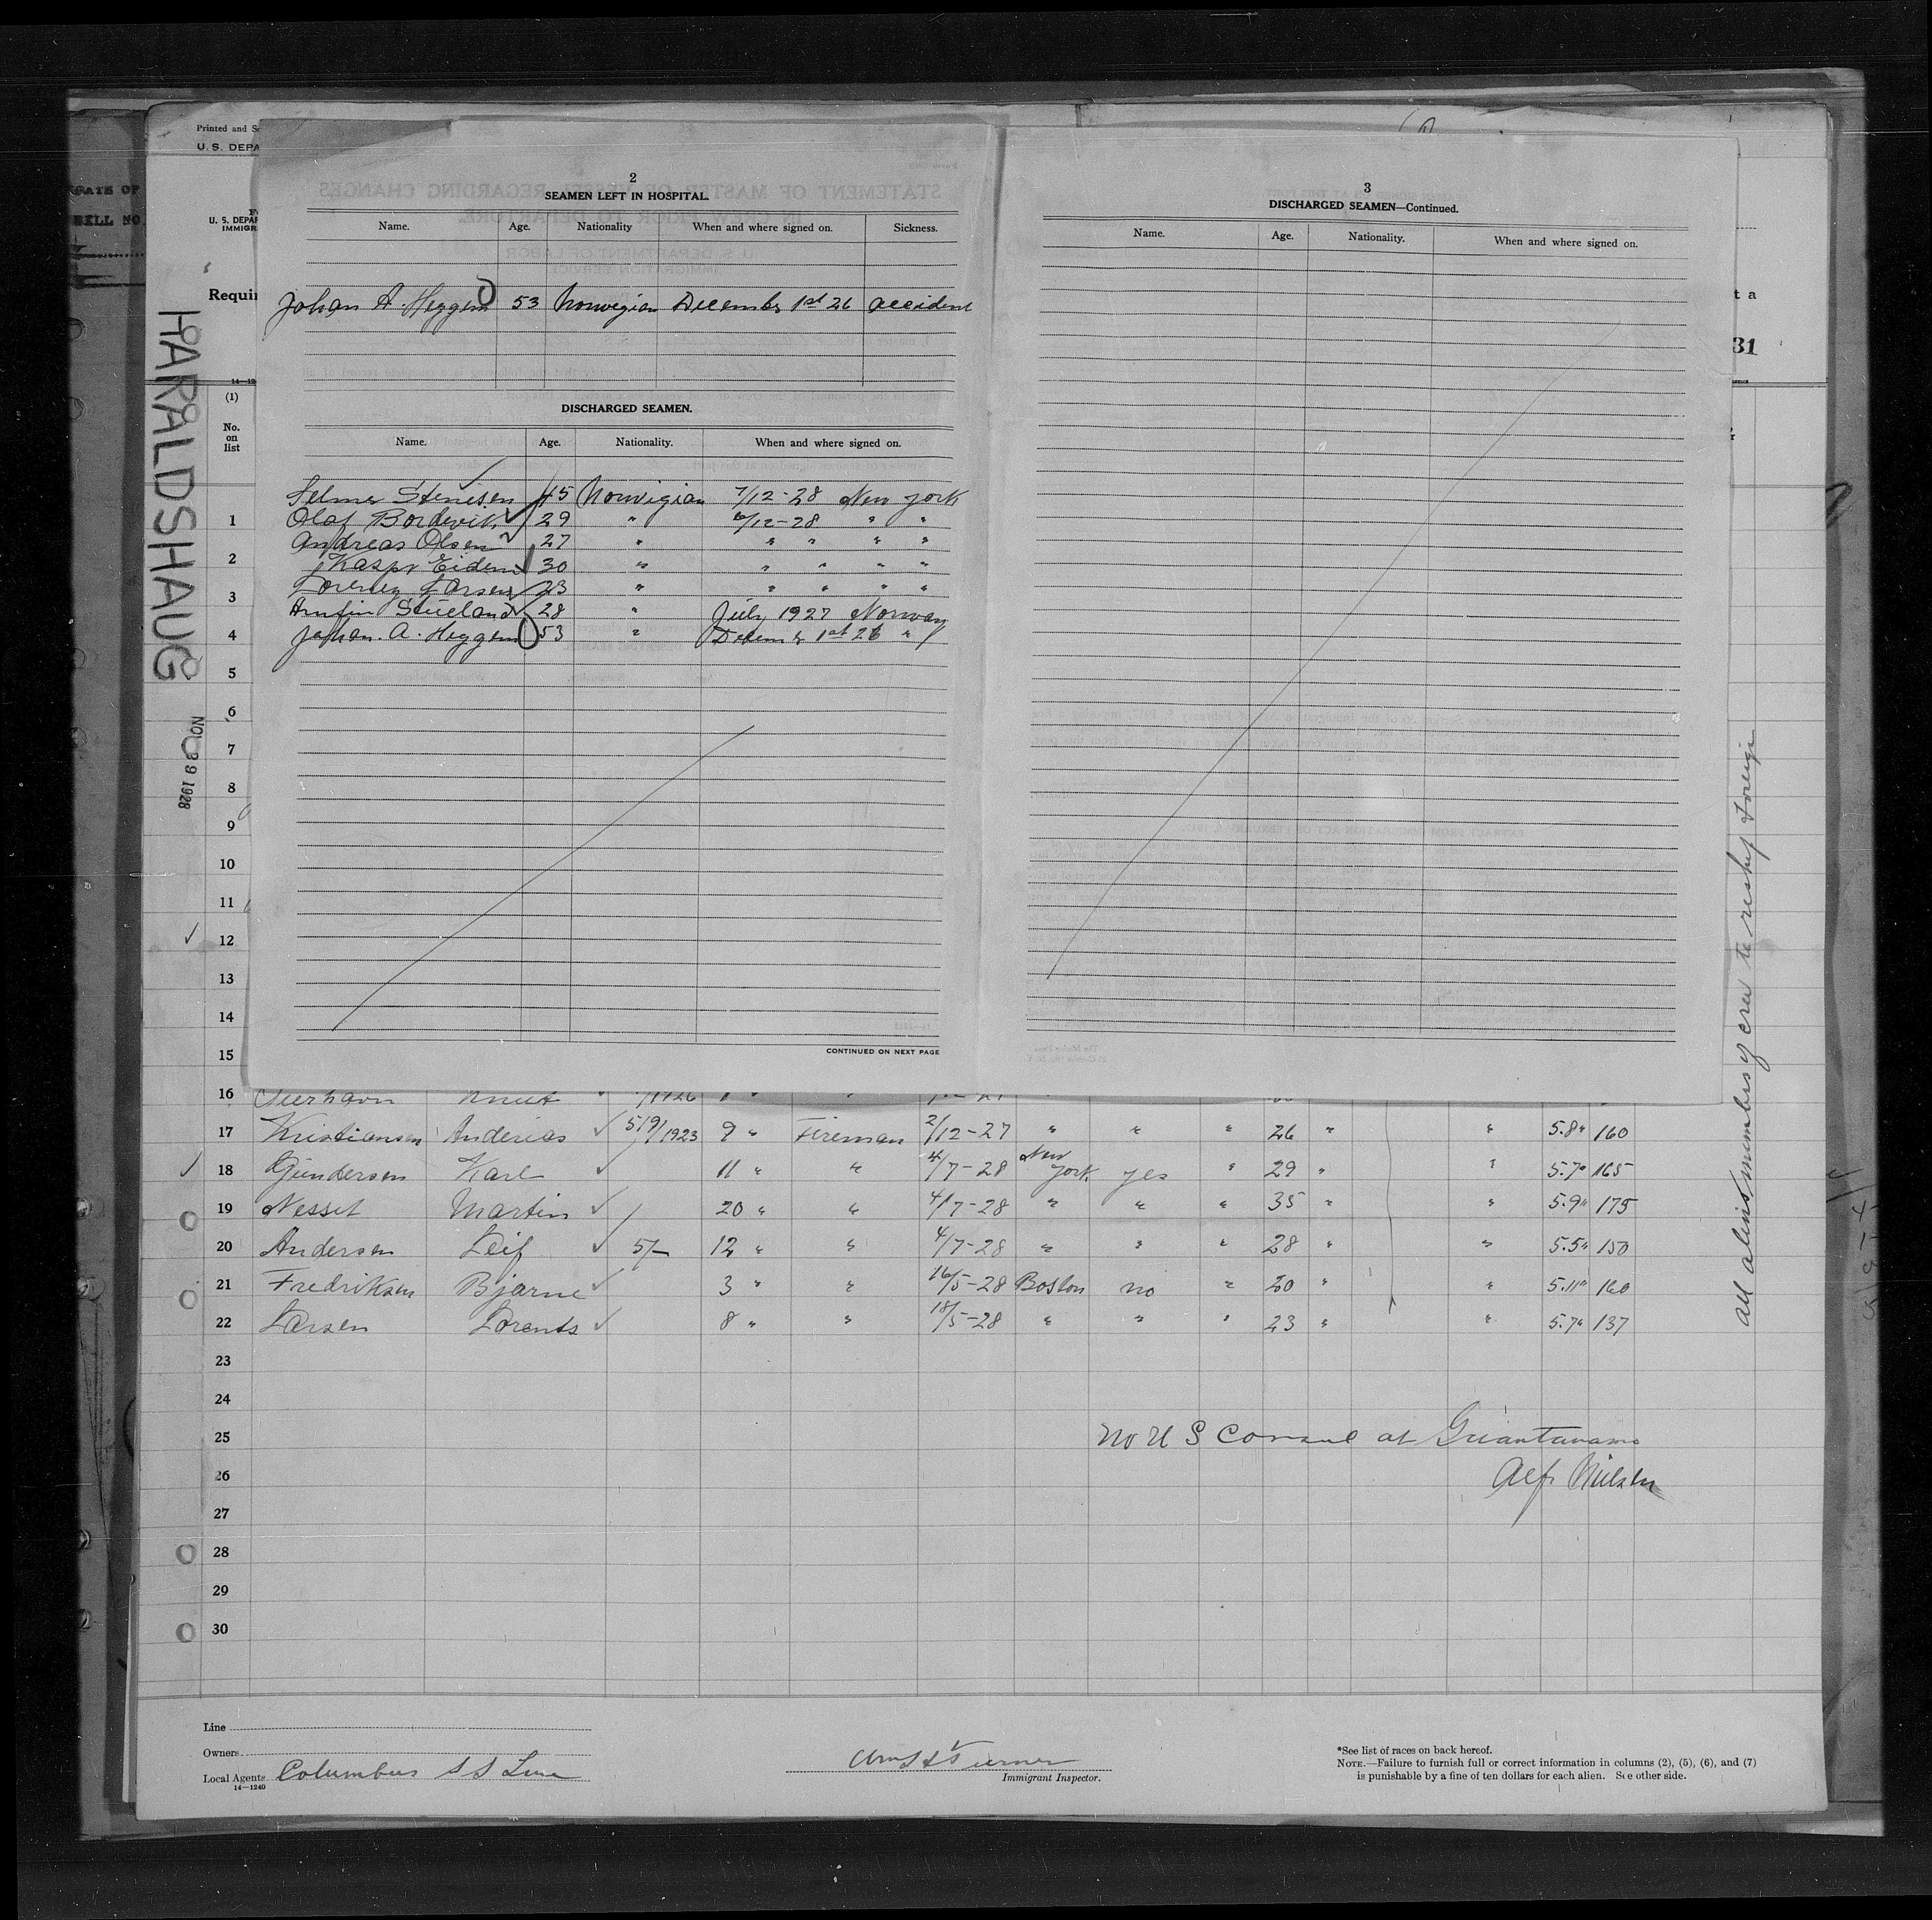 Printed and
U. S. DEPA
U. S. DEPA
IMMIGR
Requir
(1)
No.
on
list
HARALDSHAUG
1928
2
SEAMEN LEFT IN HOSPITAL.
Name. Age. Nationality When and where signed on. Sickness.
Johan A. Heggem 53 Norwegian December 1st 26 accident
DISCHARGED SEAMEN.
Name. Age. Nationality. When and where signed on.
Selmer Stenesen 45 Norwigian 7/12-28 New York
Olaf Bordevik 29 " 6/12-28 " "
Andreas Olsen 27 " " " " "
Kaspr Eidem 30 " " " " "
Larsen 23 " " " " "
Arnfin Stueland 28 " July 1927 Norway
Johan. A. Heggem 53 " 1st 26 "
CONTINUED ON NEXT PAGE
3
DISCHARGED SEAMEN—Continued.
Name. Age. Nationality. When and where signed on.
31
1
2
3
4
5
6
7
8
9
10
11
12
13
14
15
16 Knut 1926
17 Kristiansen Anderias 5/9/1923 9 " Fireman 2/12-27 " " " 26 " " 5.8" 160
18 Gundersen Karl 11 " " 4/7-28 New York yes " 29 " " 5.7" 165
19 Nesset Martin 20 " " 4/7-28 " " " 35 " " 5.9" 175
20 Andersen Leif 5/- 12 " " 4/7-28 " " " 28 " " 5.5" 150
21 Fredriksen Bjarne 3 " " 16/5-28 Boston no " 20 " " 5.11" 160
22 Larsen Lorents 8 " " 18/5-28 " " " 23 " " 5.7" 137
23
24
25 No U S Consul at Guantanamo
26 Alf Nielsen
27
28
29
30
All aliens members of crew to reship foreign
Line
Owners
Local Agents Columbus S S Line
14—1240
Turner
Immigrant Inspector.
*See list of races on back hereof.
NOTE.—Failure to furnish full or correct information in columns (2), (5), (6), and (7)
is punishable by a fine of ten dollars for each alien. See other side.